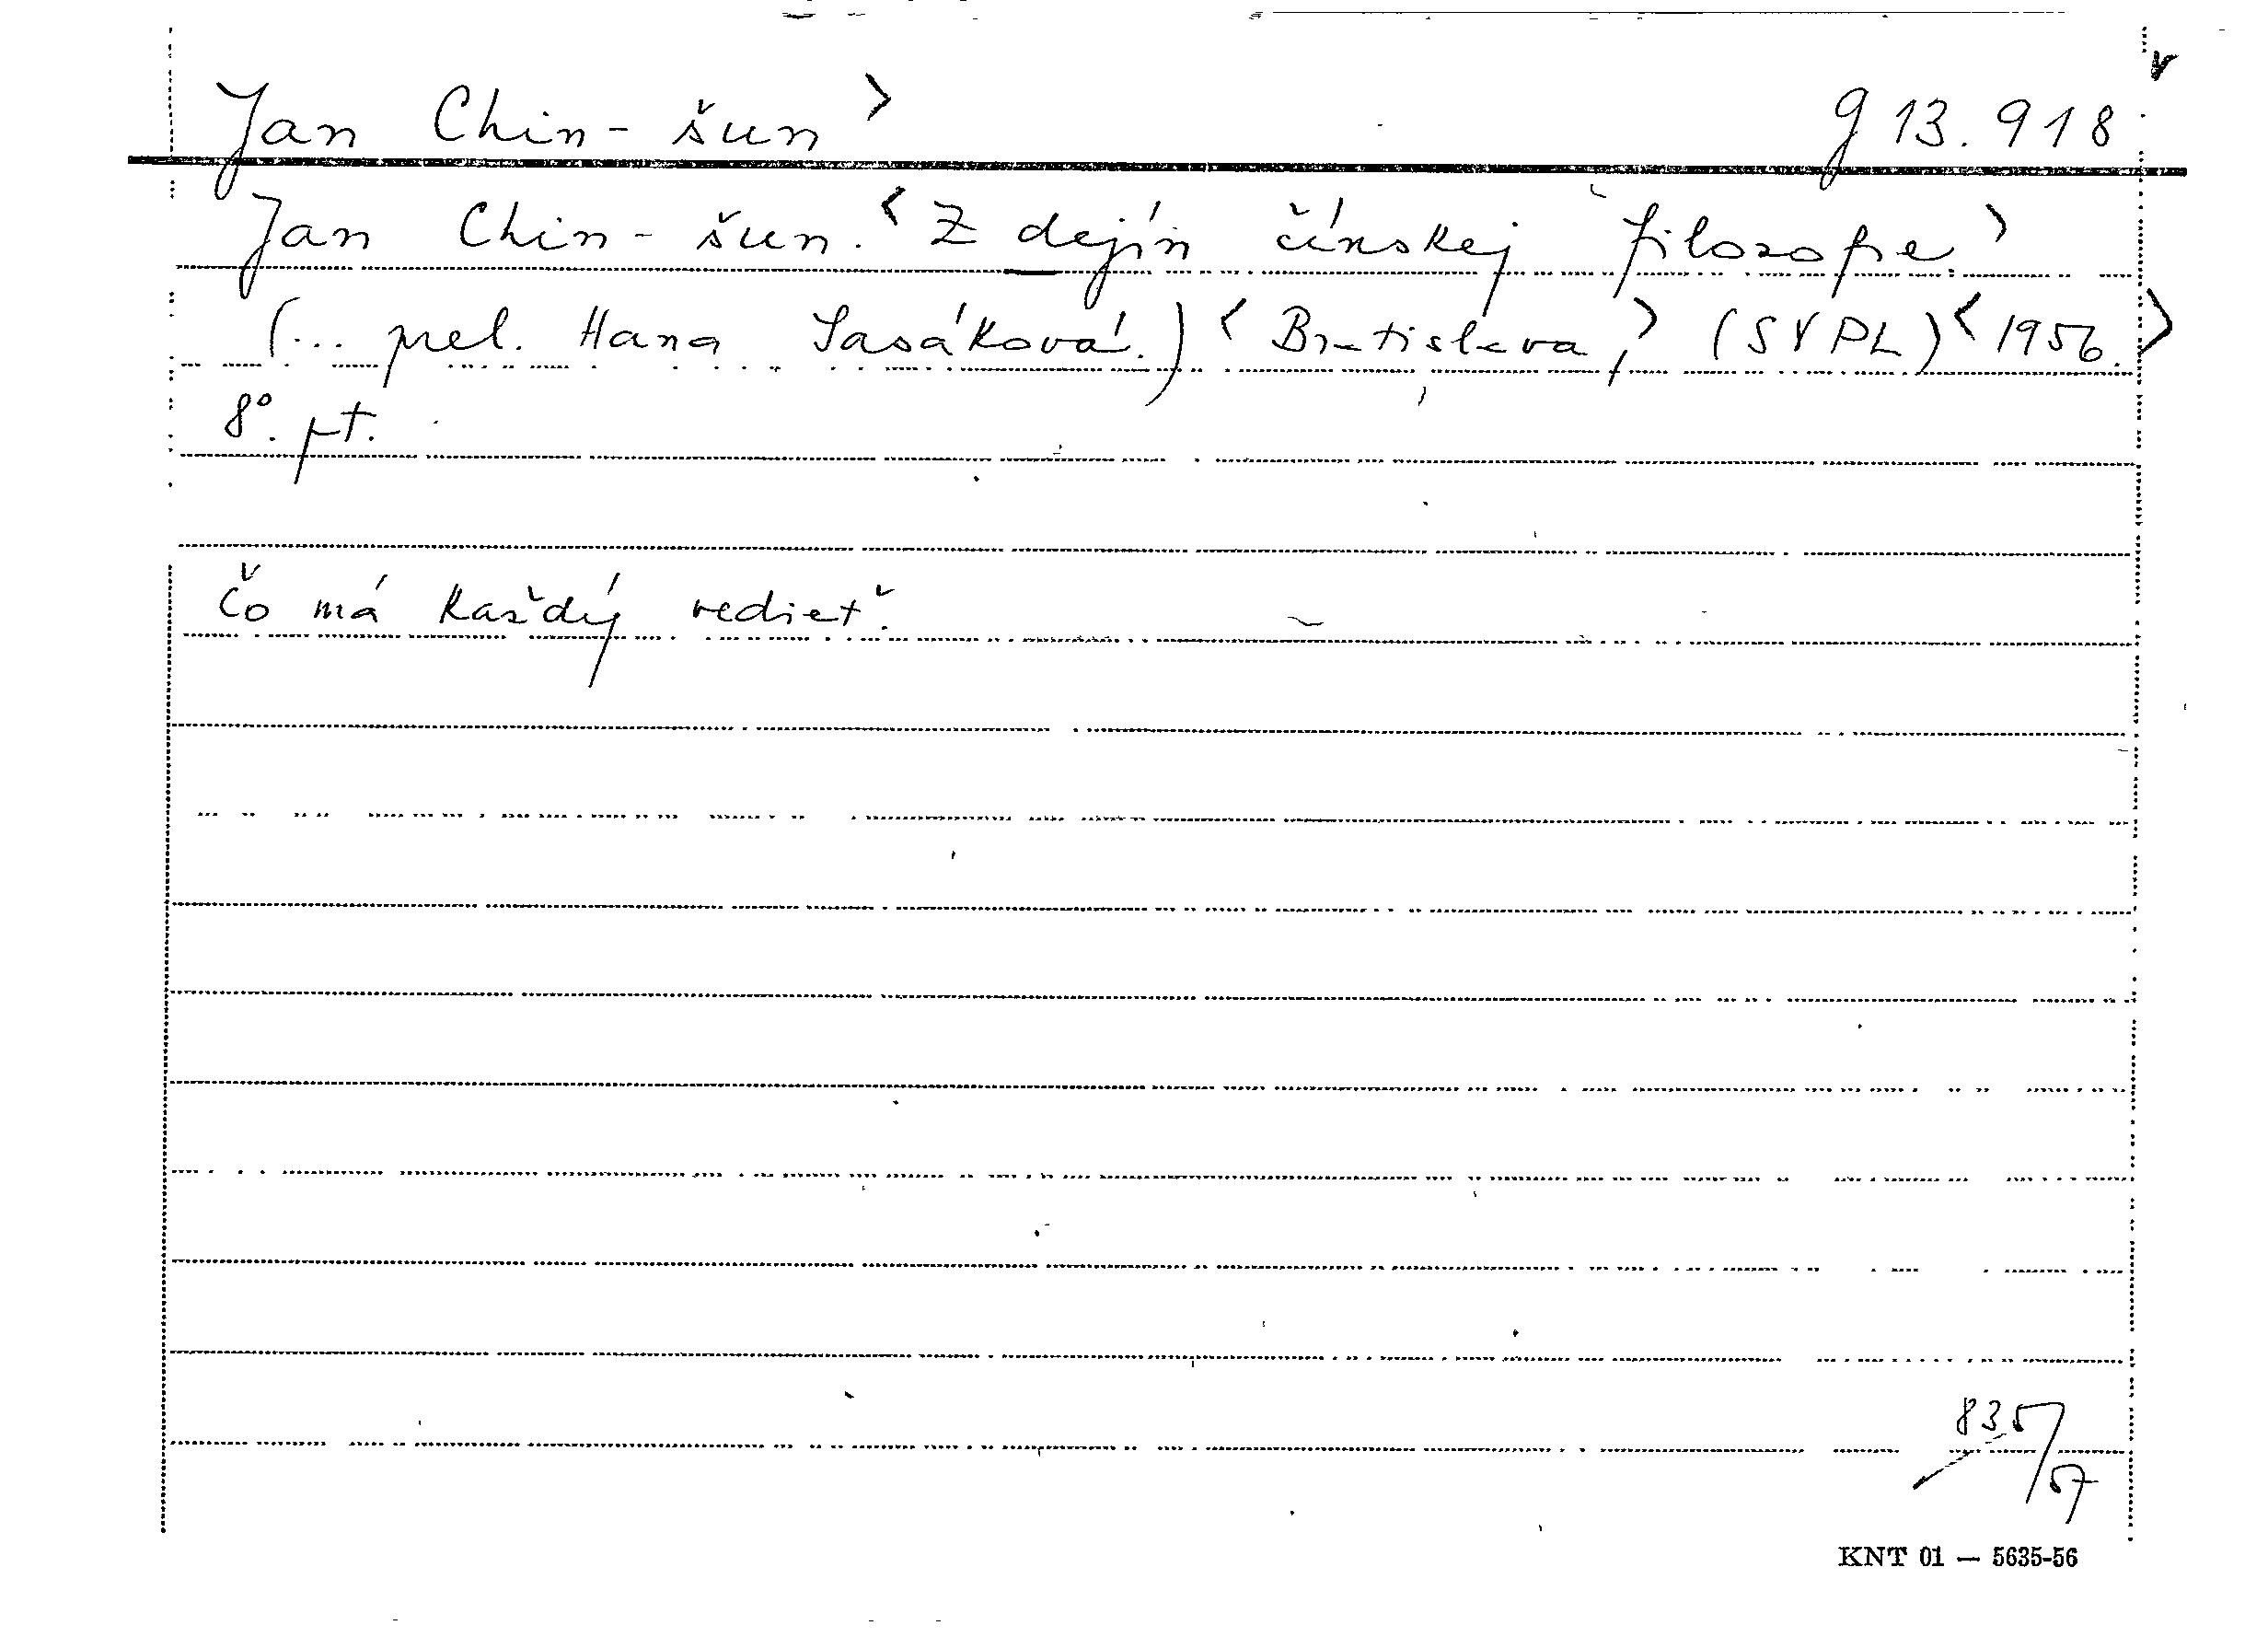 Jan Chin-šun > g 13.918
Jan Chin-šun. < Z dejín čínskej filozofie. >
(... prel. Hana Sasáková.) < Bratislava, > (SVPL) < 1956. >
8°. pt.
Čo má každý vedieť.
835/57
KNT 01 — 5635-56